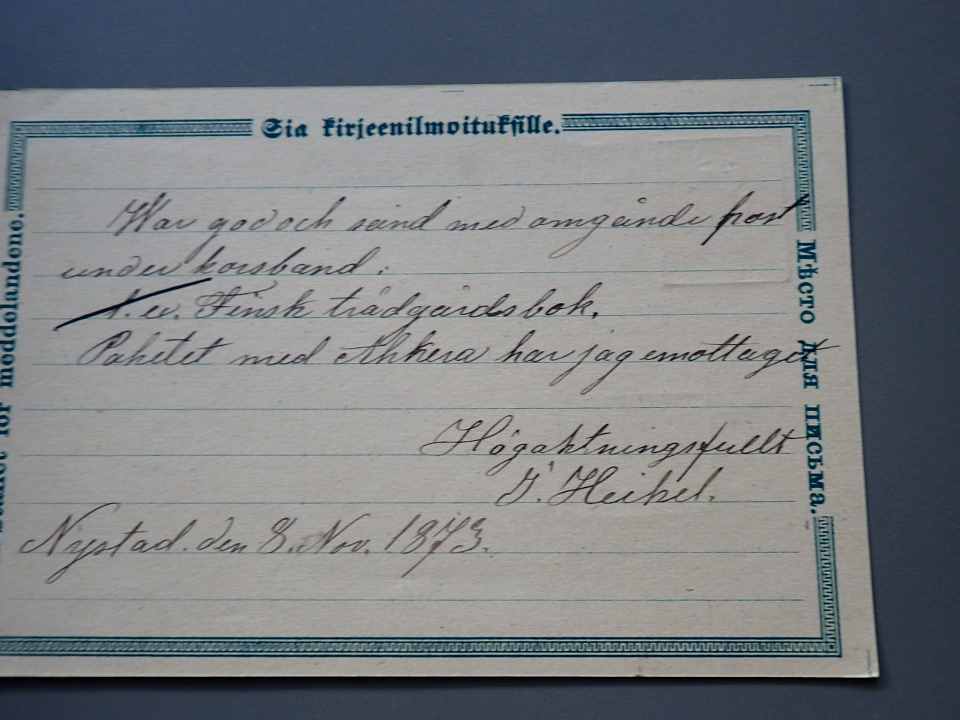 Sia kirjeenilmoituksille.
War god och sänd med omgående post
under korsband:
1. ex. Finsk trädgårdsbok.
Paketet med Ahkera har jag emottaget
Högaktningsfullt
Heikel.
Nystad. den 8. Nov. 1873.
för meddolandene.
Мѣсто для письма.